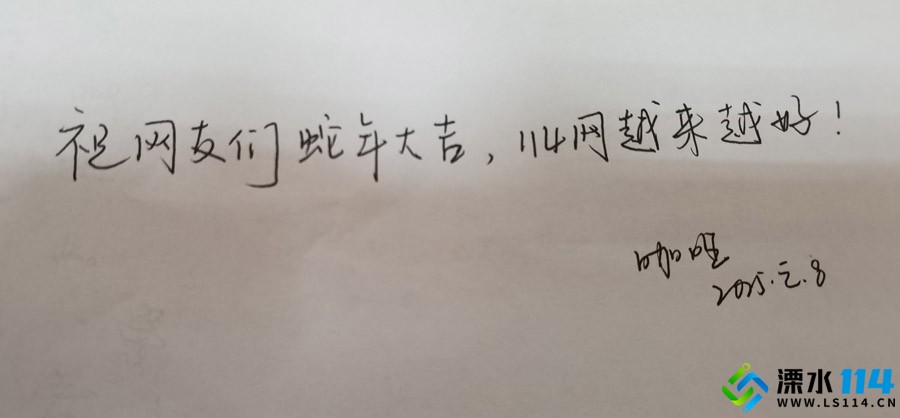 祝网友们蛇年大吉，114网越来越好！
2025.2.8
溧水114
WWW.LS114.CN